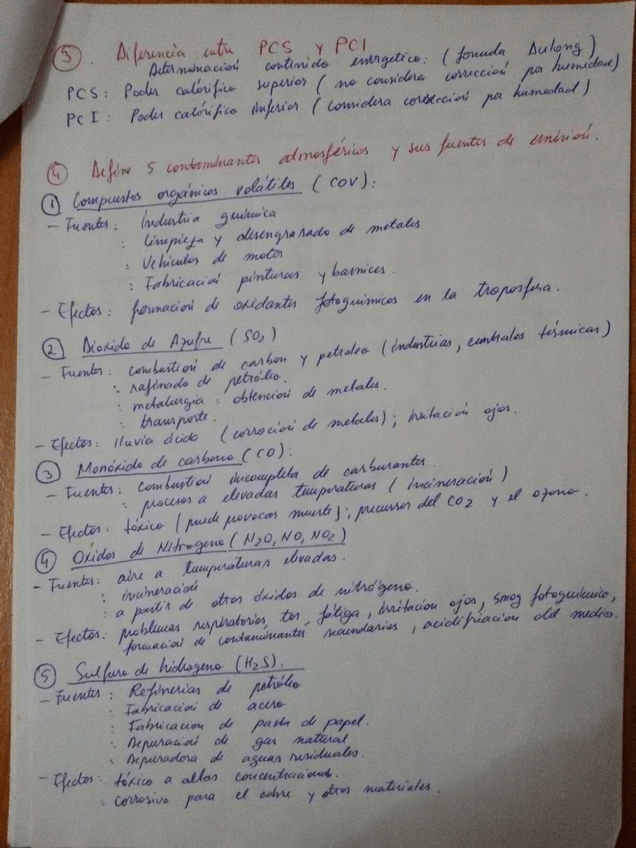 3. Diferencia entre PCS y PCI
Determinación contenido energetico: (formula Dulong)
PCS: Poder calorífico superior (no considera corrección por humedad)
PCI: Poder calorífico inferior (considera corrección por humedad)
4 Define 5 contaminantes atmosféricos y sus fuentes de emisión.
1 Compuestos orgánicos volátiles (COV):
- Fuentes: Industria química
: limpieza y desengrasado de metales
: Vehículos de motor
: Fabricación pinturas y barnices.
- Efectos: formacion de oxidantes fotoquímicos en la troposfera.
2 Dioxido de Azufre (SO2)
- Fuentes: combustión de carbon y petroleo (industrias, centrales térmicas)
: rafinado de petróleo.
: metalurgia: obtencion de metales.
: transporte.
- Efectos: lluvia ácida (corrosión de metales); irritación ojos.
3 Monóxido de carbono (CO):
- Fuentes: combustión incompleta de carburantes.
: procesos a elevadas temperaturas (incineración)
- Efectos: tóxico (puede provocas muerte); precursor del CO2 y el ozono.
4 Oxidos de Nitrogeno (N2O, NO, NO2)
- Fuentes: aire a temperaturas elevadas.
: incineración
: a partir de otros óxidos de nitrógeno.
- Efectos: problemas respiratorios, tos, fatiga, irritacion ojos, smog fotoquímico,
formacion de contaminantes secundarios, acidificacion del medio.
5 Sulfuro de hidrogeno (H2S):
- Fuentes: Refinerias de petróleo
: Fabricacion de acero
: Fabricacion de pasta de papel.
: Depuración de gas natural
: Depuradora de aguas residuales.
- Efectos: tóxico a altas concentraciones.
: corrosivo para el cobre y otros materiales.